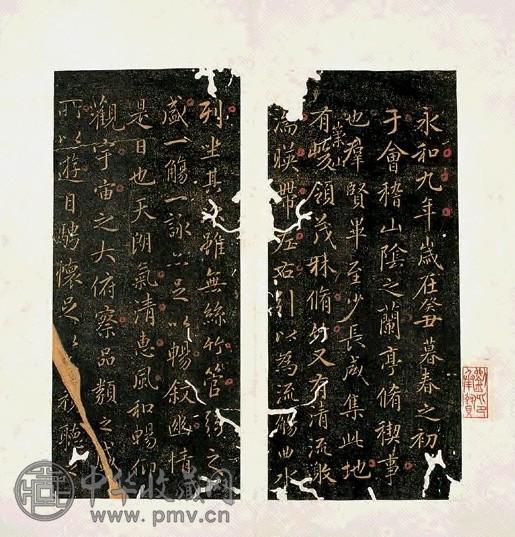 永和九年歲在癸丑暮春之初
于會稽山陰之蘭亭脩稧事
也羣賢畢至少長咸集此地
有崇山峻領茂林脩竹又有清流激
為暎帶左右引以為流觴曲水
列坐其雖無絲竹管絃之
盛一觴一詠亦足以暢敘幽情
是日也天朗氣清惠風和暢仰
觀宇宙之大俯察品類之盛
所以遊目騁懷足以聽
中华收藏网
www.pmv.cn